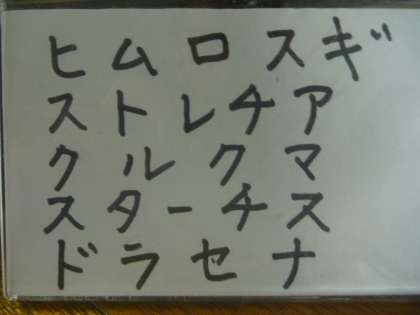 ヒムロスギ
ストレチア
クルクマ
スターチス
ドラセナ